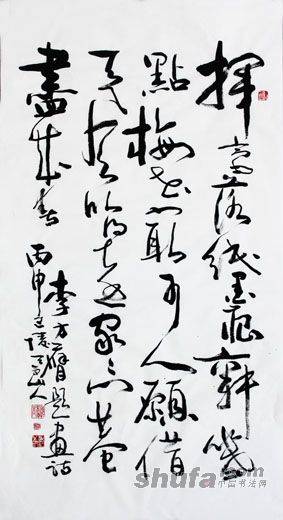 揮毫落紙墨痕新幾
點梅花最可人願借
天風吹得遠家家門巷
盡成春
李方膺題畫詩
丙申山人
shufa.com
中国书法网